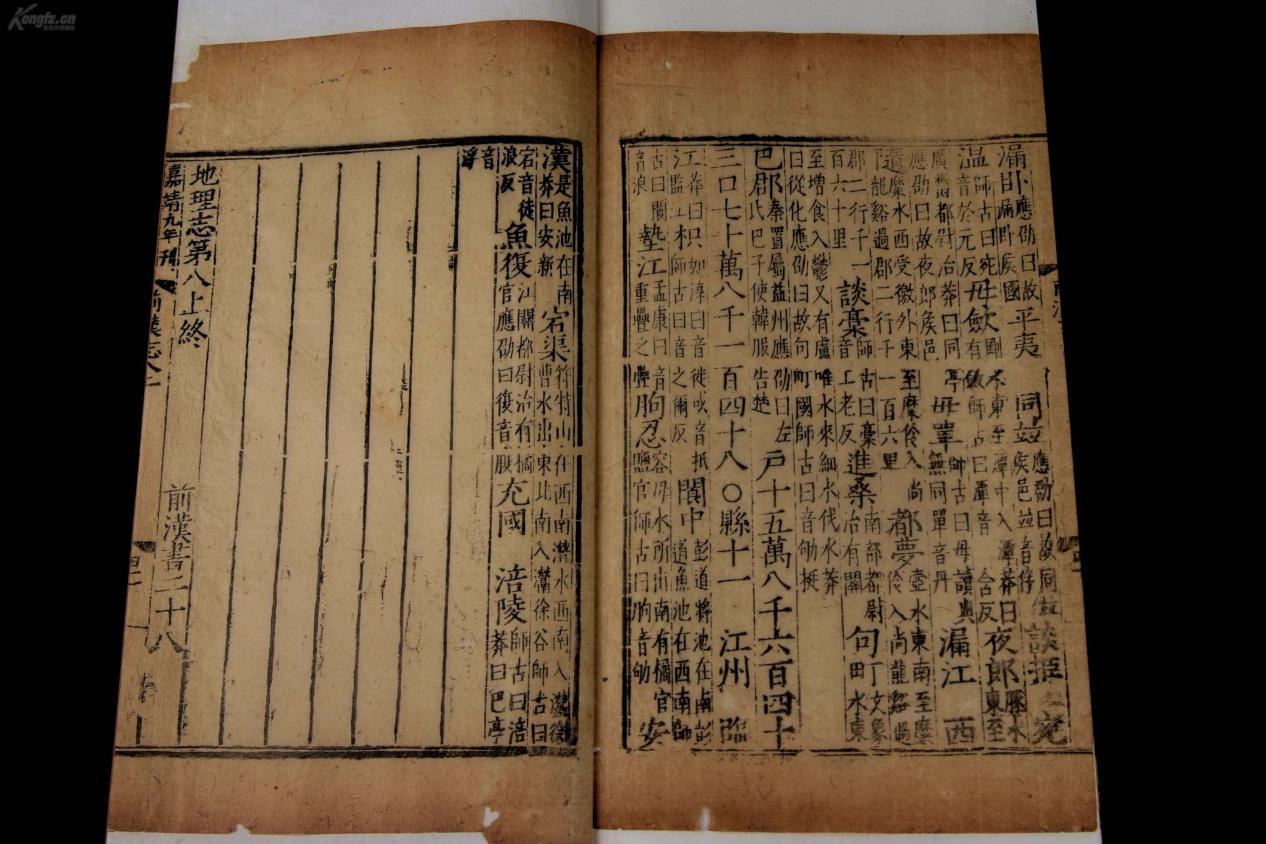 漏卧應劭曰故漏卧侯國平夷 同並應劭曰故同並侯邑並音伴談指 宛
温師古曰宛音於元反毋斂剛水東至潭中入潭莽曰有斂師古曰潭音舍反夜郎豚水東至
廣鬱都尉治莽曰同亭應劭曰故夜郎侯邑毋單師古曰毋讀與無同單音丹漏江 西
隨麋水西受徼外東至麋伶入尚龍谿過郡二行千一百六里都夢壺水東南至麋伶入尚龍谿過
郡二行千一百六十里談藁師古曰藁音工老反進桑南部都尉治有關句町文象水東
至增食入鬱又有盧唯水來細水伐水莽曰從化應劭曰故句町國師古曰音劬挺
巴郡秦置屬益州應劭曰左氏巴子使韓服告楚 戶十五萬八千六百四十
三口七十萬八千一百四十八○縣十一 江州 臨
江莽曰監江枳如淳曰音徙或音抵師古曰音之爾反閬中彭道將池在南彭道魚池在西南師
古曰閬音浪墊江孟康曰音重疊之疊朐忍容毋水所出南有橘官鹽官師古曰朐音劬安
漢是魚池在南莽曰安新宕渠符特山在西南潛水西南入灊徐曹水出東北南入灊徐谷師古曰
宕音徒浪反魚復江關都尉治有橘官應劭曰復音腹充國 涪陵師古曰涪莽曰巴亭
音浮
地理志第八上終 前漢書二十八
嘉靖九年刊 前漢志八上
Kongfz.cn